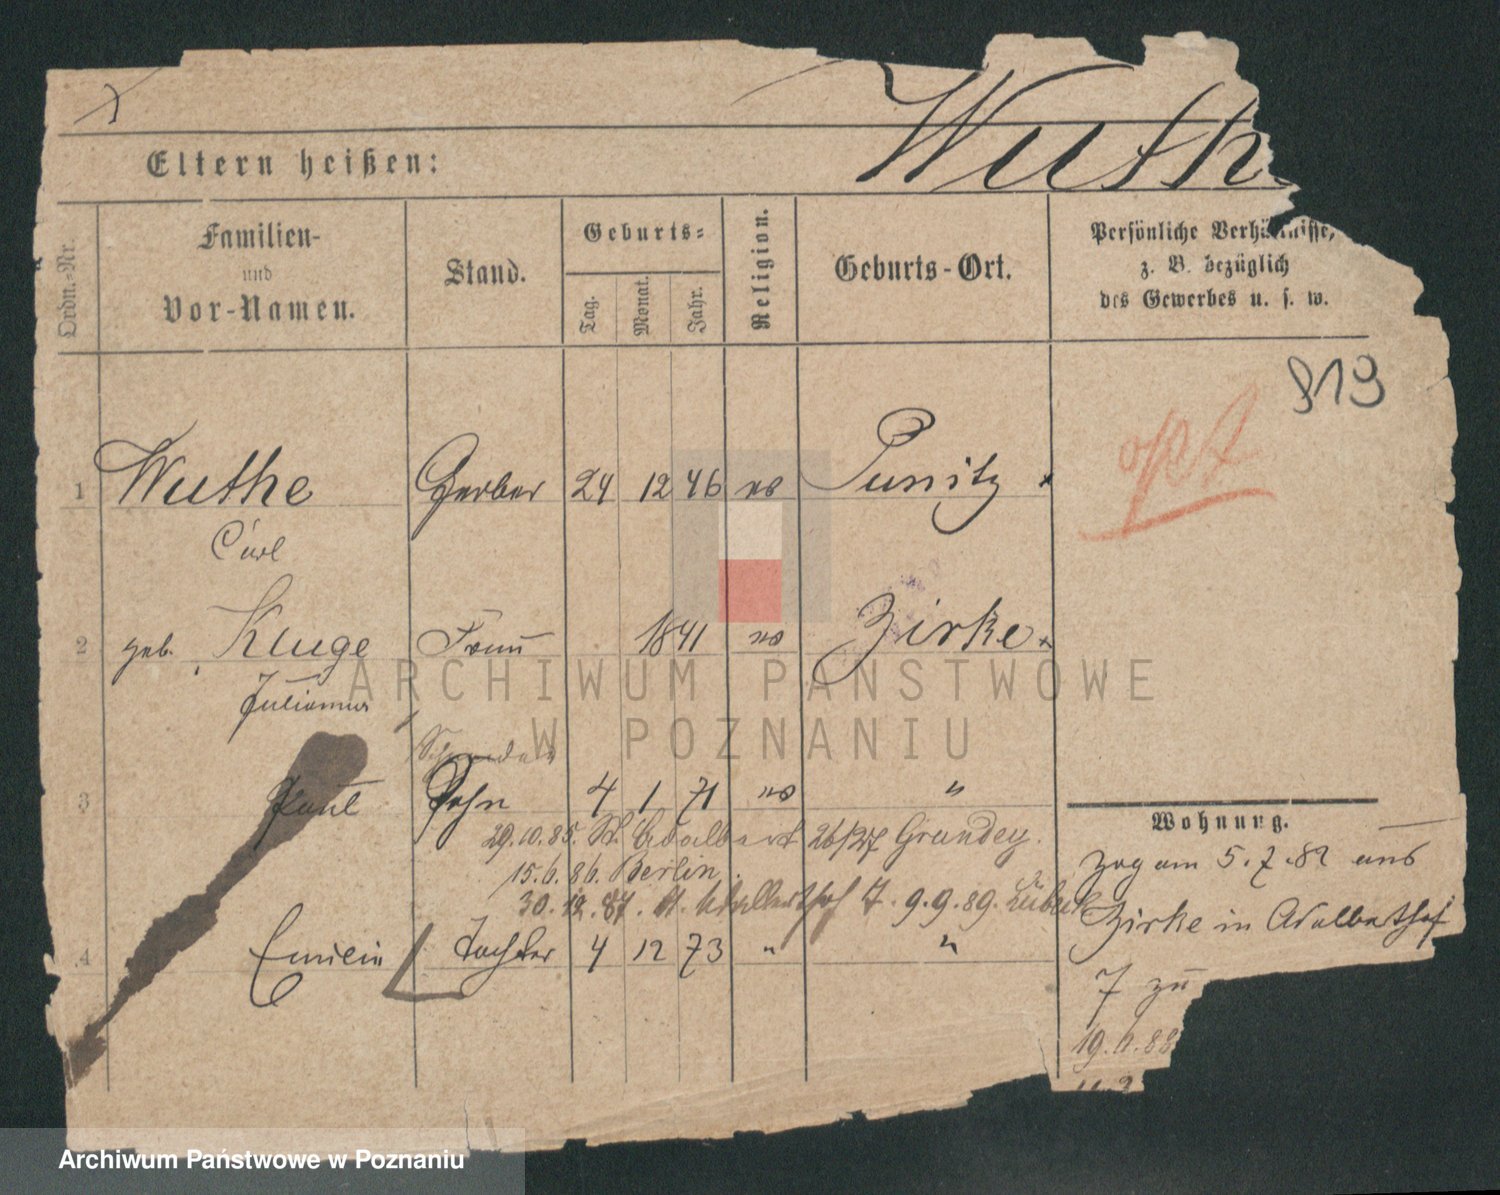 Wuth
Eltern heißen:
Ordn.-Nr.
Familien-
und
Vor-Namen.
Stand.
Geburts-
Tag.
Monat.
Jahr.
Religion.
Geburts-Ort.
Persönliche Verhältnisse,
z. B. bezüglich
des Gewerbes u. s. w.
819
1 Wuthe Gerber 24 12 46 Punitz
Carl
2 geb. Kluge Frau 1841 Zirke
Julianna
3 Paul Sohn 4 1 71 "
29.10.85. St. Adalbert 26/27
15.6.86. Berlin.
30.12.87. St. Adalberthof 7. 9.9.89. Lübeck
4 Tochter 4 12 73 " "
Wohnung.
zog am 5.7.82 aus
Zirke in Adalberthof
7 zu
19.6.88
ARCHIWUM PAŃSTWOWE
W POZNANIU
Archiwum Państwowe w Poznaniu